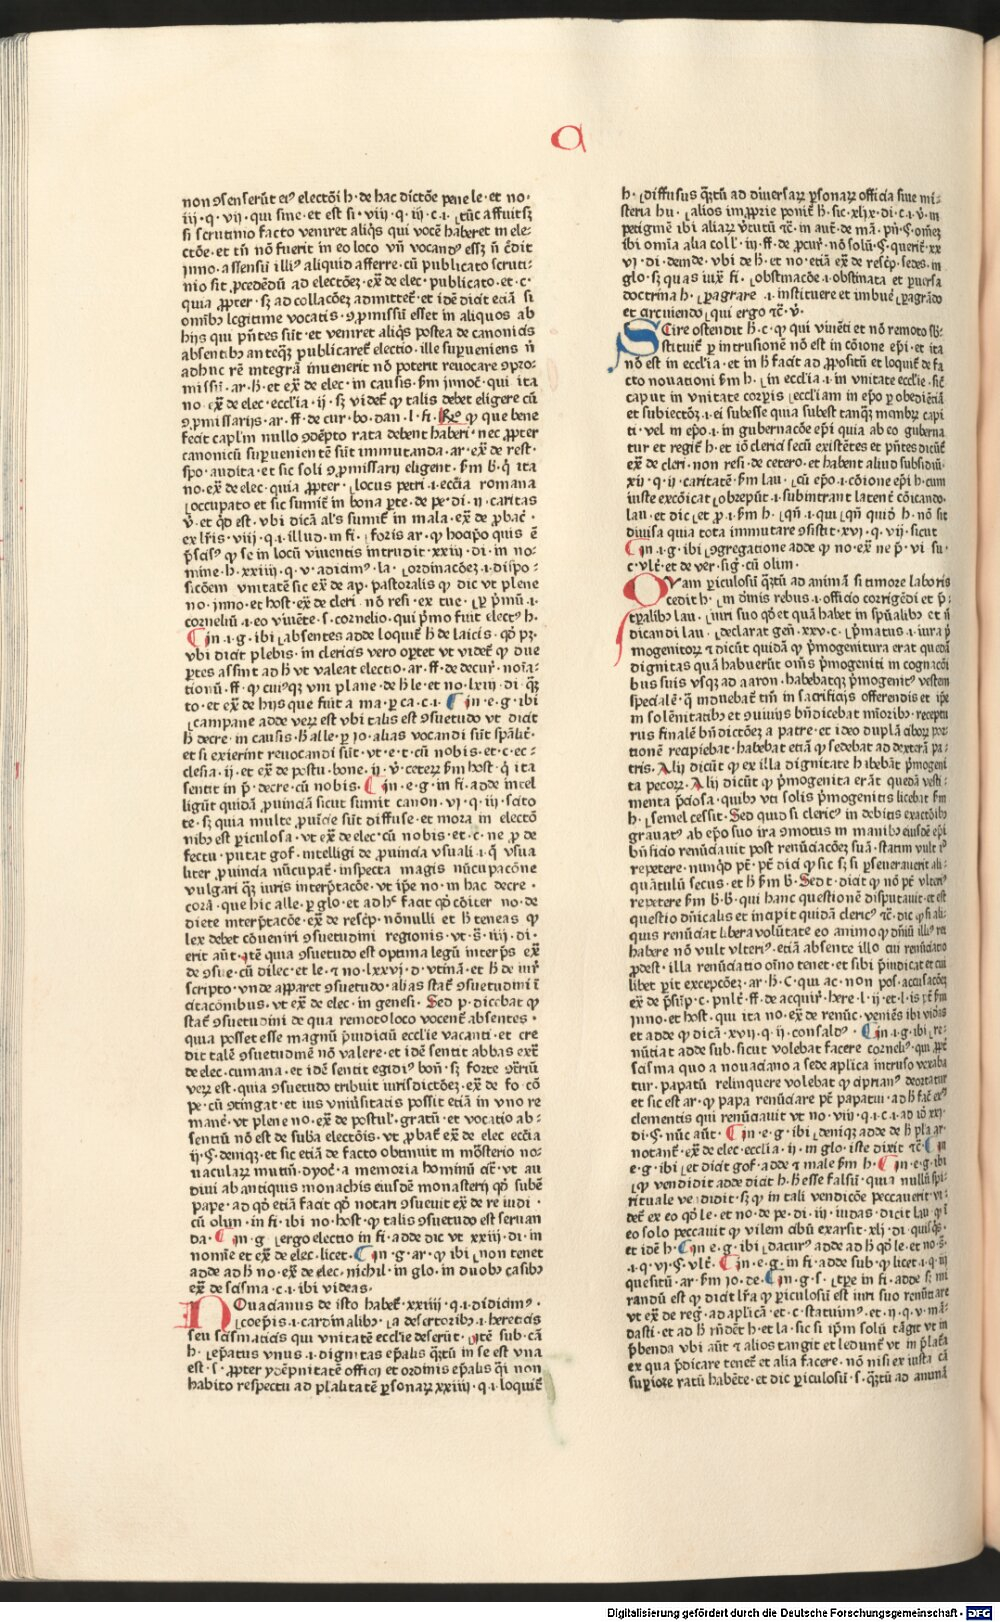 a
non ꝯsenserūt eiꝰ electōi h · de hac dictōe pene le · et no ·
iij · q · vij · qui sine · et est si · viij · q · iij · c · i · ¶tūc affuit sꝫ
si scrutinio facto veniret aliqͥs qui vocē haberet in ele-
ctōe · et tn̄ nō fuerit in eo loco vn̄ vocandꝰ essꝫ n̄ c̄dit
jnno · assensū illiꝰ aliquid afferre · cū publicato scruti-
nio sit ꝓcedēdū ad electōeꝫ · ex̄ de elec · publicato · et · c ·
quia ꝓpter · sꝫ ad collacōeꝫ admittet̄ · et idē dicit etiā si
om̄ibꝰ legitime vocatis · ꝯꝓmissū esset in aliquos ab
hijs qui pn̄tes sūt · et veniret aliqͥs postea de canonicis
absentibꝰ anteqꝫ publicaret̄ electio · ille supueniens n̄
adhuc rē integrā inuenerit nō poterit reuocare ꝯpro-
missū · ar · h̄ · et ex̄ de elec · in causis · s̄m jnnoc̄ · qui ita
no · ex̄ de elec · eccl̄ia · ij · sꝫ videt̄ ꝙ talis debet eligere cū
ꝯꝓmissarijs · ar · ff · de cur · bo · dan · l · fi · ꝙ que bene
fecit capl̄m nullo ꝯdēpto rata debent haberi · nec ꝓpter
canonicū supuenientē sūt immutanda · ar · ex̄ de rest ·
spo · audita · et sic soli ꝯꝓmissarij eligent · s̄m h̄ · qͥ ita
no · ex̄ de elec · quia ꝓpter · ¶locus petri · i · eccl̄ia romana
¶occupato et sic sumit̄ in bona ꝑte · de pe · di · ij · caritas
v̄ · et qͦd est · vbi dicā al's sumit̄ in mala · ex̄ de ꝓbac̄ ·
ex lr̄is · viij · q · i · illud · in fi · ¶foris ar · ꝙ hoc ipso quis ē
pr̄scisꝰ ꝙ se in locū viuentis intrudit · xxiij · di · in no-
mine · h · xxiiij · q · v · adiciamꝰ · la · ¶ordinacōeꝫ · i · dispo-
sicōem vnitatē sic ex̄ de ap · pastoralis ꝙ dic vt plene
no · jnno · et host · ex̄ de cleri · nō resi · ex tue · ¶ꝑ pͥmū · i ·
corneliū · i · eo viuēte · s · cornelio · qui pͥmo fuit electꝰ h ·
¶in · i · g · ibi ¶absentes adde loquit̄ h̄ de laicis · qͦ pꝫ ·
vbi dicit plebis · in clericis vero oꝑtet vt videt̄ ꝙ due
ꝑtes assint ad h̄ vt valeat electio · ar · ff · de decur · noīa-
tionū · ff · ꝙ cuiꝰqꝫ vni plane · de h̄ le · et no · lxiij · di · qꝫ
to · et ex̄ de hijs que fiut a ma · ꝑ ca · c · i · ¶in · e · g · ibi
¶campane adde verꝫ est vbi talis est ꝯsuetudo vt dicit
h̄ decre · in causis · h̄ alle · ꝑ jo · alias vocandi sūt spālit̄ ·
et si exierint reuocandi sūt · vt · e · t · cū nobis · et · c · ec-
clesia · ij · et ex̄ de postu · bone · ij · v̄ · ceterꝫ s̄m host · qͥ ita
sentit in p̄ · decre · cū nobis · ¶in · e · g · in fi · adde intel
ligūt quidā ꝓuinciā sicut sumit canon · vi · q · iij · scito
te · sꝫ quia multe ꝓuīcie sūt diffuse · et mora in electō
nibꝰ est ꝑiculosa · vt ex̄ de elec · cū nobis · et · c · ne ꝓ de
fectu · putat gof · intelligi de ꝓuincia vsuali · i · qͣ vsua
liter ꝓuincia nūcupat̄ · inspecta magis nūcupacōne
vulgari qꝫ iuris interp̄tacōe · vt ip̄e no · in hac decre ·
corā · que hic alle · ꝑ glo · et ad hͦ facit qͦ cōiter no · de
diete interp̄tacōe · ex̄ de resc̄p · nōnulli et h̄ teneas ꝙ
lex debet cōueniri ꝯsuetudini regionis · vt · s̄ · iiij · di ·
erit aūt · itē quia ꝯsuetudo est optima legū interp̄s ex̄
de ꝯsue · cū dilec · et le · ⁊ no · lxxvj · d · vtinā · et h̄ de iur̄
scripto · vnde apparet ꝯsuetudo · alias stat̄ ꝯsuetudini ī
citaconibus · vt ex̄ de elec · in genesi · Sed p · dicebat ꝙ
stat̄ ꝯsuetudini de qua remoto loco vocent̄ absentes ·
quia posset esse magnū pͥiudiciū eccl̄ie vacanti · et cre
dit talē ꝯsuetudinē nō valere · et idē sentit abbas ext̄
de elec · cumana · et idē sentit egidiꝰ bon̄ · sꝫ forte ꝯtrariū
verꝫ est · quia ꝯsuetudo tribuit iurisdictōeꝫ · ex̄ de fo · cō
pe · cū ꝯtingat · et ius vniūsitatis possit etiā in vno re
mane̅ · vt plene no · ex̄ de postul̄ · gratū · et vocatio ab-
sentiū nō est de suba electōis · vt ꝓbat̄ ex̄ de elec eccl̄ia
ij · §· deniqꝫ · et sic etiā de facto obtinuit in mōsterio no-
uacularꝫ mutiū · dyoc̄ · a memoria hominū cit̄ · vt au
diui ab antiquis monachis eiusdē monasterij qͦ subē
pape · ad qͦ etiā facit qͦ notari ꝯsueuit ex̄ de re iudi ·
cū olim · in fi · ibi no · host · ꝙ talis ꝯsuetudo est seruan
da · ¶in · g · ¶ergo electio in fi · adde dic vt xxiii · di · in
nomīe et ex̄ de elec · licet · ¶in · g · ar · ꝙ ibi ¶non tenet
adde ad h̄ no · ex̄ de elec · nichil · in glo · in duobꝰ casibꝰ
ex̄ de scisma · c · i · ibi videas ·
Nouacianus de isto habet̄ · xxiiij · q · i · didicimꝰ ·
¶coep̄is · i · cardinalibꝰ · ¶a desertoribꝰ · i · hereticis
seu scismaticis qui vnitatē eccl̄ie deserūt · itē sub · cā
h · ¶ep̄atus vnus · i · dignitas ep̄alis qꝫtū in se est vna
est · s · ꝓpter ydēpnitatē officij et ordinis ep̄alis qͣi non
habito respectu ad pl̄alitatē ꝑsonarꝫ xxiiij · q · i · loquit̄
h · ¶diffusus qꝫtū ad diuersarꝫ ꝑsonarꝫ officia siue mi-
steria hu · ¶alios imꝓprie ponit̄ h̄ · sic · xlix · di · c · i · v̄ · in
petigine ibi aliarꝫ v̄tutū ⁊c̄ · in aut̄ · de mā · pn̄ · §· om̄eꝫ
ibi om̄ia alia coll̄ · iij · ff · de ꝓcur̄ · nō solū · §· querit̄ · xx
vj · di · deinde · vbi de h̄ · et no · etiā ex̄ de resc̄p · sedes · in
glo · sꝫ quas iux̄ fi · ¶obstinacōe · i · obstinata et ꝑuersa
doctrina h · ¶ꝑagrare · i · instituere et imbue̅ ¶ꝑagrādo
et circuiendo ¶qui ergo ⁊c̄ · v̄ ·
Scire ostendit h̄ · c · ꝙ qui viuēti et nō remoto sb̄-
stituit̄ ꝑ intrusionē nō est in cōione ep̄i · et ita
nō est in eccl̄ia · et in h̄ facit ad ꝓpositū et loquit̄ de fa
cto nouationi s̄m h · ¶in eccl̄ia · i · in vnitate eccl̄ie · sic̄
caput in vnitate corꝑis ¶eccl̄iam in ep̄o ꝑ obediētiā
et subiectōꝫ · i · ei subesse quia subest tanqꝫ membꝝ capi
ti · vel in ep̄o · i · in gubernacōe ep̄i quia ab eo guberna
tur et regit̄ h · et iō clerici secū existētes et pn̄tes dicūt̄
ex̄ de cleri · non resi · de cetero · et habent aliud subsidiū ·
xij · q · ij · caritatē · s̄m lau · ¶cū ep̄o · i · cōione ep̄i h · cum
iuste excōicat ¶obrepūt · i · subintrant latent̄ cōicando ·
lau · et dic ¶et ꝓ · i · s̄m h · ¶qn̄ · i · qui ¶qn̄ quid h · nō sit
diuisa quia tota immutare ꝯsistit · xvj · q · vij · sicut
¶in · i · g · ibi ¶ꝯgregatione adde ꝙ no · ex̄ ne p̄ · vi · su ·
c · vlt̄ · et de ver · sig̅ · cū olim ·
Quam ꝑiculosū qꝫtū ad animā si timore laboris
cedit h · ¶in om̄is rebus · i · officio corrigēdi et p̄ ·
tꝑalibꝰ lau · ¶iuri suo qͦ et quā habet in spūalibꝰ et ī
dicandi lau · ¶declarat gen̄ · xxv · c · ¶pͥmatus · i · iura pͥ
mogenitorꝫ ⁊ dicūt quidā ꝙ pͥmogenitura erat quedā
dignitas quā habuerūt om̄s pͥmogeniti in cognacōi
bus suis vsqꝫ ad aaron · habebatqꝫ pͥmogenitꝰ vestem
specialē · qͣ induebat̄ tm̄ in sacrificijs offerendis et ip̄e
in solēnitatibꝰ et ꝯuiuijs bn̄dicebat mīoribꝰ · receptu
rus finalē bn̄dictōeꝫ a patre · et ideo duplā ciborꝫ por
tionē recipiebat · habebat etiā ꝙ sedebat ad dexterā pa-
tris · Alij dicūt ꝙ ex illa dignitate habebāt pͥmogeni
ta pecorꝫ · Alij dicūt ꝙ pͥmogenita erāt quedā vesti-
menta p̄ciosa · quibꝰ vti solis pͥmogenitis licebat s̄m
h · ¶semel cessit · Sed quid si clericꝰ in debitis exactōibꝰ
grauatꝰ ab ep̄o suo ira ꝯmotus in manibꝰ eiusdē ep̄i
bn̄ficio renūciauit post renūciacōeꝫ suā · statim vult iͩ
repetere · nunqͥd pt̄ · pt̄ dici ꝙ sic sꝫ si ꝑseuerauerit ali-
quātulū secus · et h̄ s̄m h̄ · Sed t · dicit ꝙ nō pt̄ vlteriꝰ
repetere s̄m b̄ · b̄ · qui hanc questionē disputauit · et est
questio dn̄icalis et incipit quidā clericꝰ ⁊c̄ · dic ꝙ si ali-
quis renūciat libera volūtate eo animo ꝙ dn̄iū illiꝰ rei
habere nō vult vlteriꝰ · etiā absente illo cui renūciatio
ꝓdest · illa renūciatio oīno tenet · et sibi pͥiudicat et cui
libet ꝑit excepcōeꝫ · ar · h̄ · C · qui ac · non pos · accusacōeꝫ
ex̄ de p̄sūp · c · pnl̄t̄ · ff · de acquir̄ · here · l · ij · et · l · is pt̄ s̄m
jnno · et host · qui ita no · ex̄ de renūc · veniēs ibi videas
et adde ꝙ dicā · xvij · q · ij · consaldꝰ · ¶in · i · g · ibi ¶re-
nūtiat adde sub · sicut volebat facere corneliꝰ · qui ꝓpt̄
scisma quo a nouaciano a sede aplica intruso vexaba
tur · papatū relinquere volebat ꝙ ciprianꝰ deortatur
et sic est ar · ꝙ papa renūciare pt̄ papatui · ad h̄ fac̄ exꝰ
clementis qui renūciauit vt no · viij · q · i · c · i · ad iō xxj ·
di · §· nūc aūt · ¶in · e · g · ibi ¶deniqꝫ adde de h̄ pla · ar ·
notant̄ · ex̄ de elec · ecclia · ij · in glo · iste dixit ⁊c̄ · ¶in
e · g · ibi ¶et dicit gof · adde ⁊ male s̄m h · ¶in · e · g · ibi
¶ꝙ vendidit adde dicit h · h̄ esse falsū · quia nullū spi-
rituale vēdidit · sꝫ ꝙ in tali vendicōe peccauerit vi-
det̄ ex eo qͦ le · et no · de pe · di · iij · iudas · dicit lau · ꝙ i
eo solo peccauit ꝙ vilem cibū exarsit · xlj · di · quisqͥs ·
et idē h · ¶in · e · g · ibi ¶daturꝰ adde ad h̄ qͦ le · et no · s̄ ·
i · q · vj · §· vlt̄ · ¶in · e · g · in fi · adde sub · ꝙ licet · i · q · iij
quesitū · ar · s̄m jo · de · ¶in · g · s · ¶tꝑe in fi · adde s̄ · mi
randū est ꝙ dicit lr̄a ꝙ ꝑiculosū est iuri suo renūtiare
vt ex̄ de reg̅ · ad aplicā · et · c · statuimꝰ · et · ij · q · v · mā-
dasti · et ad h̄ rn̄dēt h · et la · sic si ip̄m solū tāgit vt in
p̄benda vbi aūt ⁊ alios tangit et ledunt̄ vt in pl̄atꝭ
ex qua p̄dicare tenet̄ et alia facere · nō nisi ex iusta cā
supiore ratū habēte · et dic ꝑiculosū · s · qꝫtū ad animā
Digitalisierung gefördert durch die Deutsche Forschungsgemeinschaft - DFG